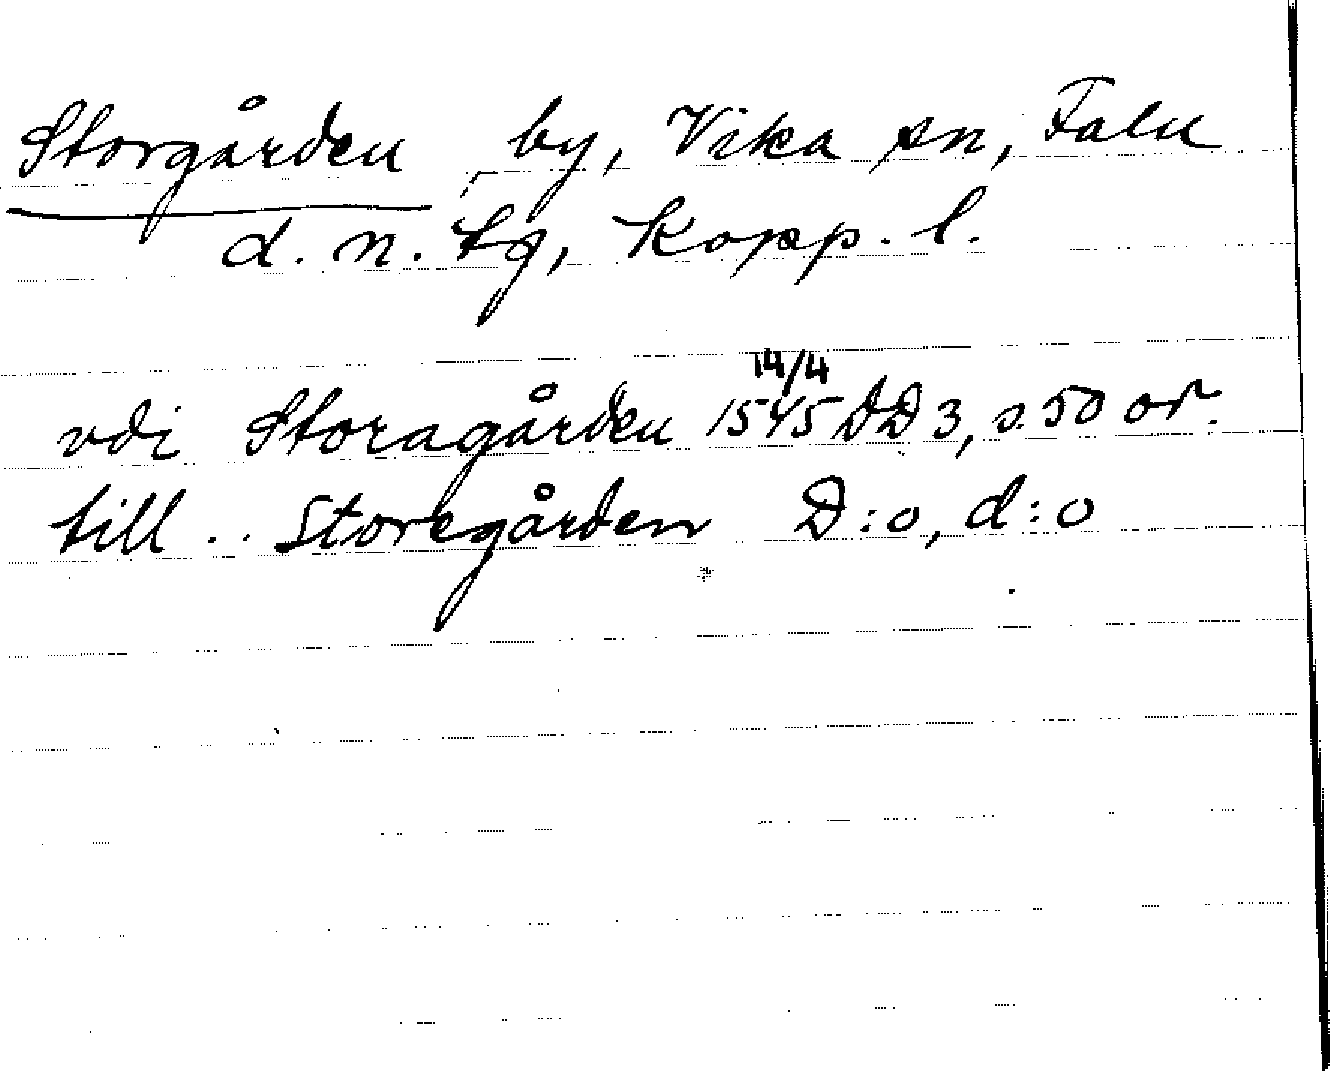 Storgården, by, Vika sn, Falu
d. n. tg, Kopp. l.
14/4
vdi Storagården 1545 DD 3, s. 50 or.
till .. Storegården D:o, d:o